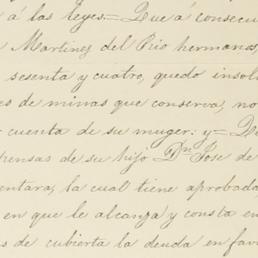 á las leyes.= Que á consecu
Martinez del Rio hermanas,
sesenta y cuatro, quedo insol
es de minas que conserva, no
cuenta de su muger: y= D
pensas de su hijo Dn Jose de
entara, la cual tiene aprobada,
en que le alcanza y consta en
s de cubierta la deuda en fav